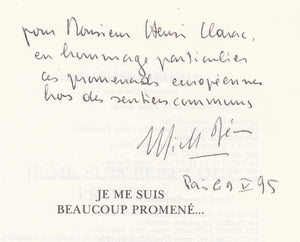 pour Monsieur Henri Clarac,
en hommage particulier
ces promenades européennes
hors des sentiers communs
Paris 9 V 95
JE ME SUIS
BEAUCOUP PROMENÉ...